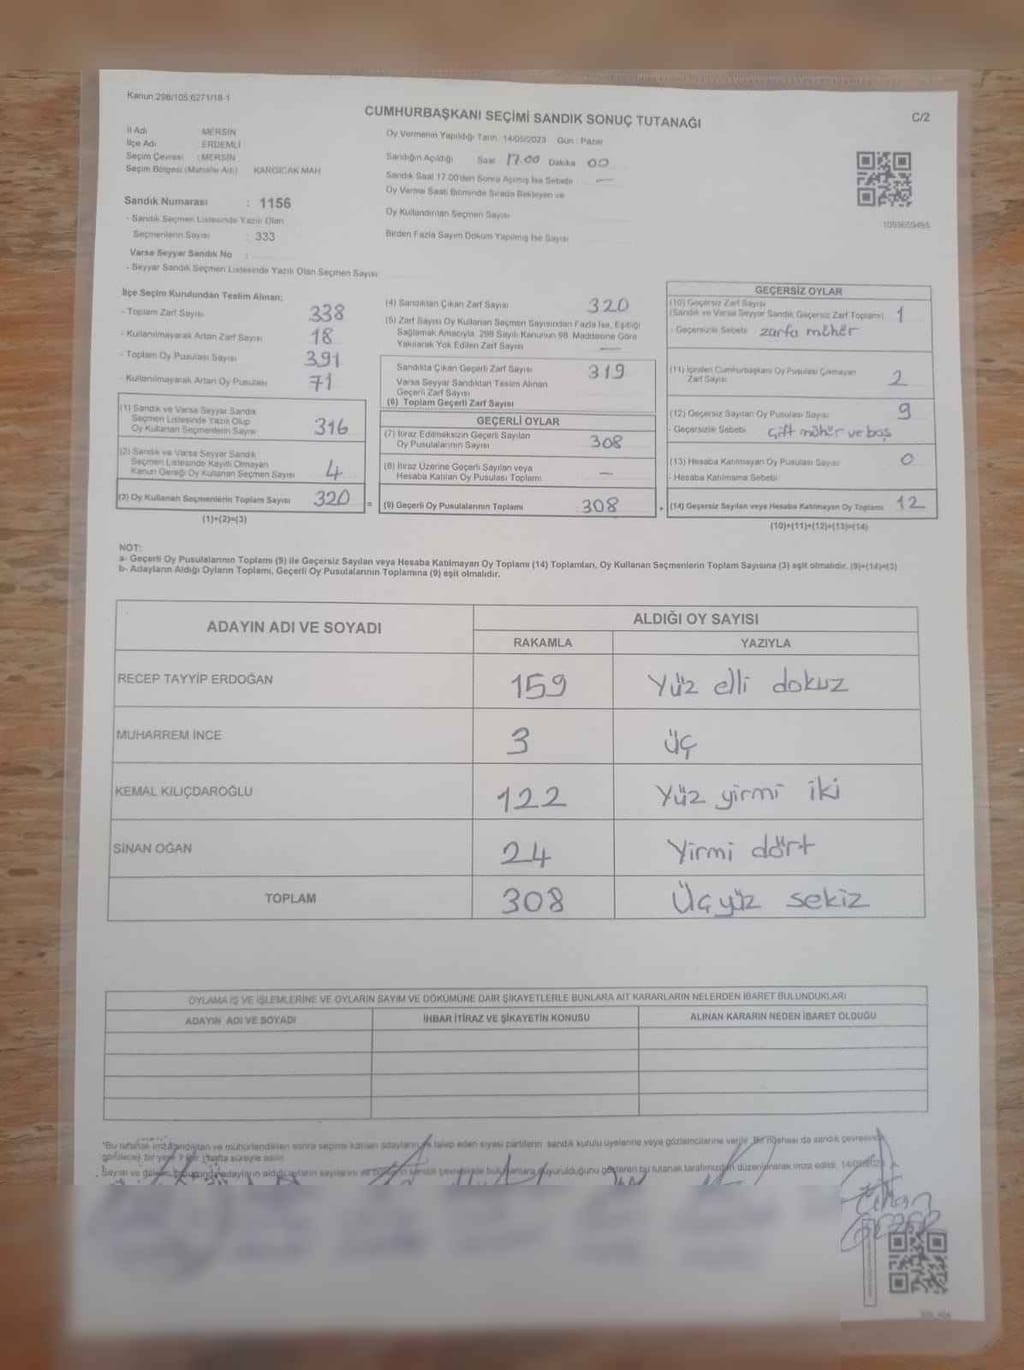 Kanun:298/105;6271/18-1
CUMHURBAŞKANI SEÇİMİ SANDIK SONUÇ TUTANAĞI
C/2
İl Adı MERSİN
İlçe Adı ERDEMLİ
Seçim Çevresi : MERSİN
Seçim Bölgesi (Mahalle Adı) KARGICAK MAH.
Oy Vermenin Yapıldığı Tarih: 14/05/2023 Gün : Pazar
Sandığın Açıldığı Saat 17.00 Dakika 00
Sandık Saat 17.00'den Sonra Açılmış İse Sebebi —
Oy Verme Saati Bitiminde Sırada Bekleyen ve
Oy Kullandırılan Seçmen Sayısı
Birden Fazla Sayım Döküm Yapılmış İse Sayısı
Sandık Numarası : 1156
- Sandık Seçmen Listesinde Yazılı Olan
Seçmenlerin Sayısı : 333
Varsa Seyyar Sandık No :
- Seyyar Sandık Seçmen Listesinde Yazılı Olan Seçmen Sayısı
İlçe Seçim Kurulundan Teslim Alınan;
- Toplam Zarf Sayısı 338
- Kullanılmayarak Artan Zarf Sayısı 18
- Toplam Oy Pusulası Sayısı 391
- Kullanılmayarak Artan Oy Pusulası 71
(1) Sandık ve Varsa Seyyar Sandık
Seçmen Listesinde Yazılı Olup
Oy Kullanan Seçmenlerin Sayısı 316
(2) Sandık ve Varsa Seyyar Sandık
Seçmen Listesinde Kayıtlı Olmayan
Kanun Gereği Oy Kullanan Seçmen Sayısı 4
(3) Oy Kullanan Seçmenlerin Toplam Sayısı 320 =
(1)+(2)=(3)
(4) Sandıktan Çıkan Zarf Sayısı 320
(5) Zarf Sayısı Oy Kullanan Seçmen Sayısından Fazla İse, Eşitliği
Sağlamak Amacıyla, 298 Sayılı Kanunun 98. Maddesine Göre
Yakılarak Yok Edilen Zarf Sayısı —
Sandıkta Çıkan Geçerli Zarf Sayısı 319
Varsa Seyyar Sandıktan Teslim Alınan
Geçerli Zarf Sayısı
(6) Toplam Geçerli Zarf Sayısı
GEÇERLİ OYLAR
(7) İtiraz Edilmeksizin Geçerli Sayılan
Oy Pusulalarının Sayısı 308
(8) İtiraz Üzerine Geçerli Sayılan veya
Hesaba Katılan Oy Pusulası Toplamı —
(9) Geçerli Oy Pusulalarının Toplamı 308 +
GEÇERSİZ OYLAR
(10) Geçersiz Zarf Sayısı
(Sandık ve Varsa Seyyar Sandık Geçersiz Zarf Toplamı) 1
- Geçersizlik Sebebi zarfa mühür
(11) İçinden Cumhurbaşkanı Oy Pusulası Çıkmayan
Zarf Sayısı 2
(12) Geçersiz Sayılan Oy Pusulası Sayısı 9
- Geçersizlik Sebebi Çift mühür ve boş
(13) Hesaba Katılmayan Oy Pusulası Sayısı 0
- Hesaba Katılmama Sebebi
(14) Geçersiz Sayılan veya Hesaba Katılmayan Oy Toplamı 12
(10)+(11)+(12)+(13)=(14)
NOT:
a- Geçerli Oy Pusulalarının Toplamı (9) ile Geçersiz Sayılan veya Hesaba Katılmayan Oy Toplamı (14) Toplamları, Oy Kullanan Seçmenlerin Toplam Sayısına (3) eşit olmalıdır. (9)+(14)=(3)
b- Adayların Aldığı Oyların Toplamı, Geçerli Oy Pusulalarının Toplamına (9) eşit olmalıdır.
ADAYIN ADI VE SOYADI
ALDIĞI OY SAYISI
RAKAMLA YAZIYLA
RECEP TAYYİP ERDOĞAN 159 Yüz elli dokuz
MUHARREM İNCE 3 üç
KEMAL KILIÇDAROĞLU 122 Yüz yirmi iki
SİNAN OĞAN 24 Yirmi dört
TOPLAM 308 Üçyüz sekiz
OYLAMA İŞ VE İŞLEMLERİNE VE OYLARIN SAYIM VE DÖKÜMÜNE DAİR ŞİKAYETLERLE BUNLARA AİT KARARLARIN NELERDEN İBARET BULUNDUKLARI
ADAYIN ADI VE SOYADI İHBAR İTİRAZ VE ŞİKAYETİN KONUSU ALINAN KARARIN NEDEN İBARET OLDUĞU